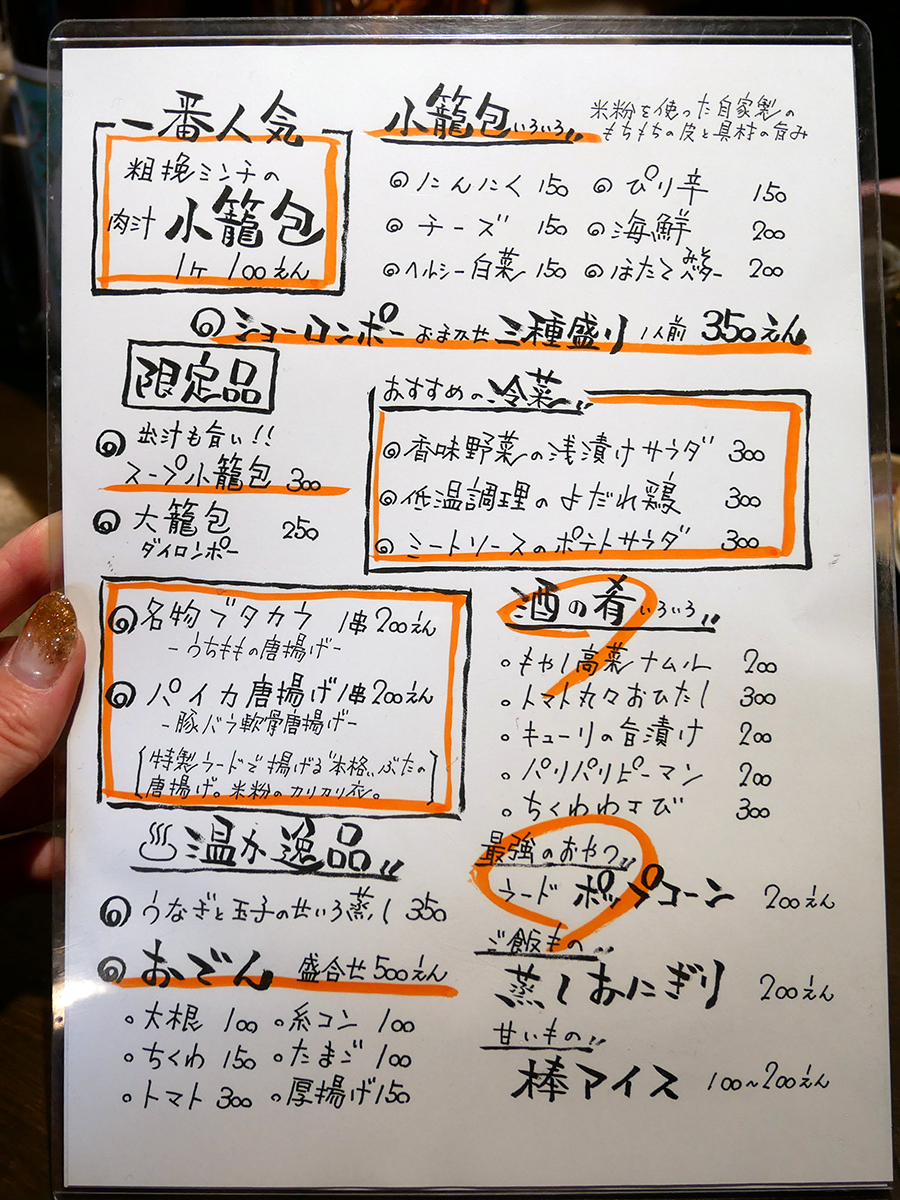 一番人気
粗挽ミンチの
肉汁 小籠包
1ヶ 100えん
小籠包いろいろ〃
米粉を使った自家製の
もちもちの皮と具材の旨み
◎にんにく 150 ◎ぴり辛 150
◎チーズ 150 ◎海鮮 200
◎ヘルシー白菜 150 ◎ほたてみそバター 200
◎ショーロンポー おまかせ 三種盛り 1人前 350えん
限定品
◎出汁も旨い!!
スープ小籠包 300
◎大籠包 250
ダイロンポー
おすすめの冷菜〃
◎香味野菜の浅漬けサラダ 300
◎低温調理のよだれ鶏 300
◎ミートソースのポテトサラダ 300
◎名物ブタカウ 1串200えん
-うちももの唐揚げ-
◎パイカ唐揚げ 1串200えん
-豚バラ軟骨唐揚げ-
[特製ラードで揚げる"本格"ぶたの
唐揚げ。米粉のカリカリ衣。]
♨温か逸品〃
◎うなぎと玉子のせいろ蒸し 350
◎おでん 盛合せ500えん
○大根 100 ○糸コン 100
○ちくわ 150 ○たまご 100
○トマト 300 ○厚揚げ 150
酒の肴いろいろ〃
○もやし高菜ナムル 200
○トマト丸々おひたし 300
○キューリの旨漬け 200
○パリパリピーマン 200
○ちくわわさび 300
最強のおやつ〃
ラード ポップコーン 200えん
ご飯もの〃
蒸しおにぎり 200えん
甘いもの〃
棒アイス 100~200えん